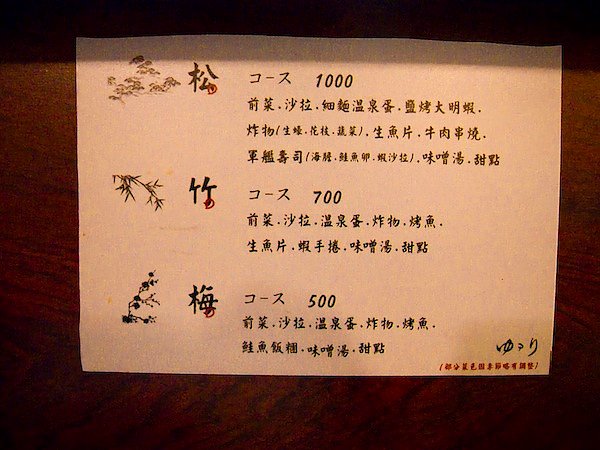 松 コース 1000
前菜.沙拉.細麵溫泉蛋.鹽烤大明蝦.
炸物(生蠔.花枝.蔬菜).生魚片.牛肉串燒.
軍艦壽司(海膽.鮭魚卵.蝦沙拉).味噌湯.甜點
竹 コース 700
前菜.沙拉.溫泉蛋.炸物.烤魚.
生魚片.蝦手捲.味噌湯.甜點
梅 コース 500
前菜.沙拉.溫泉蛋.炸物.烤魚.
鮭魚飯糰.味噌湯.甜點
ゆゝり
(部分菜色因季節略有調整)